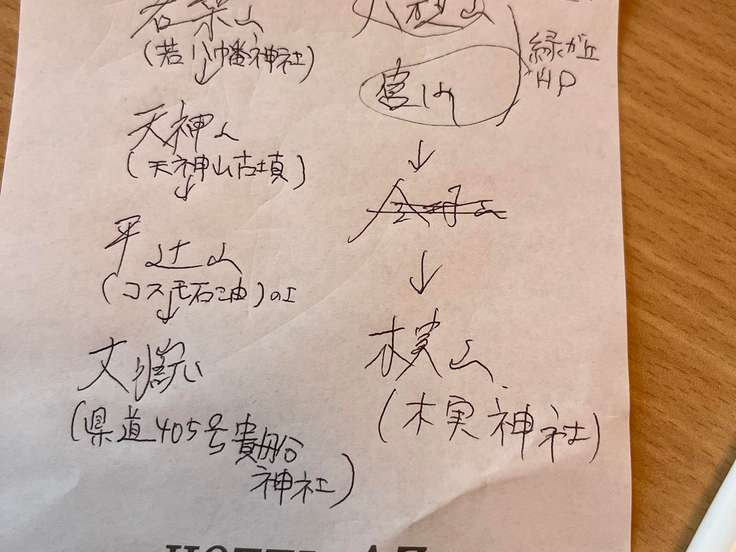 若葉山
(若八幡神社)
↓
天神山
(天神山古墳)
↓
平辻山
(コスモ石油)の上
↓
(県道405号貴船
神社)
緑が丘
HP
宮山
↓
↓
木実山
(木実神社)
HOTEL AZ